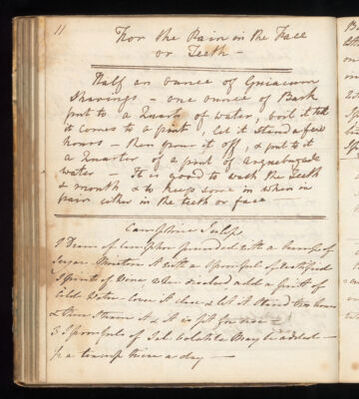 11
For the Pain in the Face
or Teeth -
Half an ounce of Guiacum
Shavings - one ounce of Bark
put to a Quart of water, boil it till
it comes to a pint, let it stand a few
hours - then pour it off, & put to it
a Quarter of a pint of arquebuzade
water - It is good to wash the Teeth
& mouth & to keep some in when in
pain either in the teeth or face
Camphire Julep
1 Dram of Camphor pounded with a lump of
Sugar Moisten it with a Spoonful of rectified
Spirits of Wine, when desolved add a pint of
Cold Water cover it close & let it stand two hours
& then Strain it & it is fit for use
3 Spoonfuls of Sal Volatile May be added -
three a day -